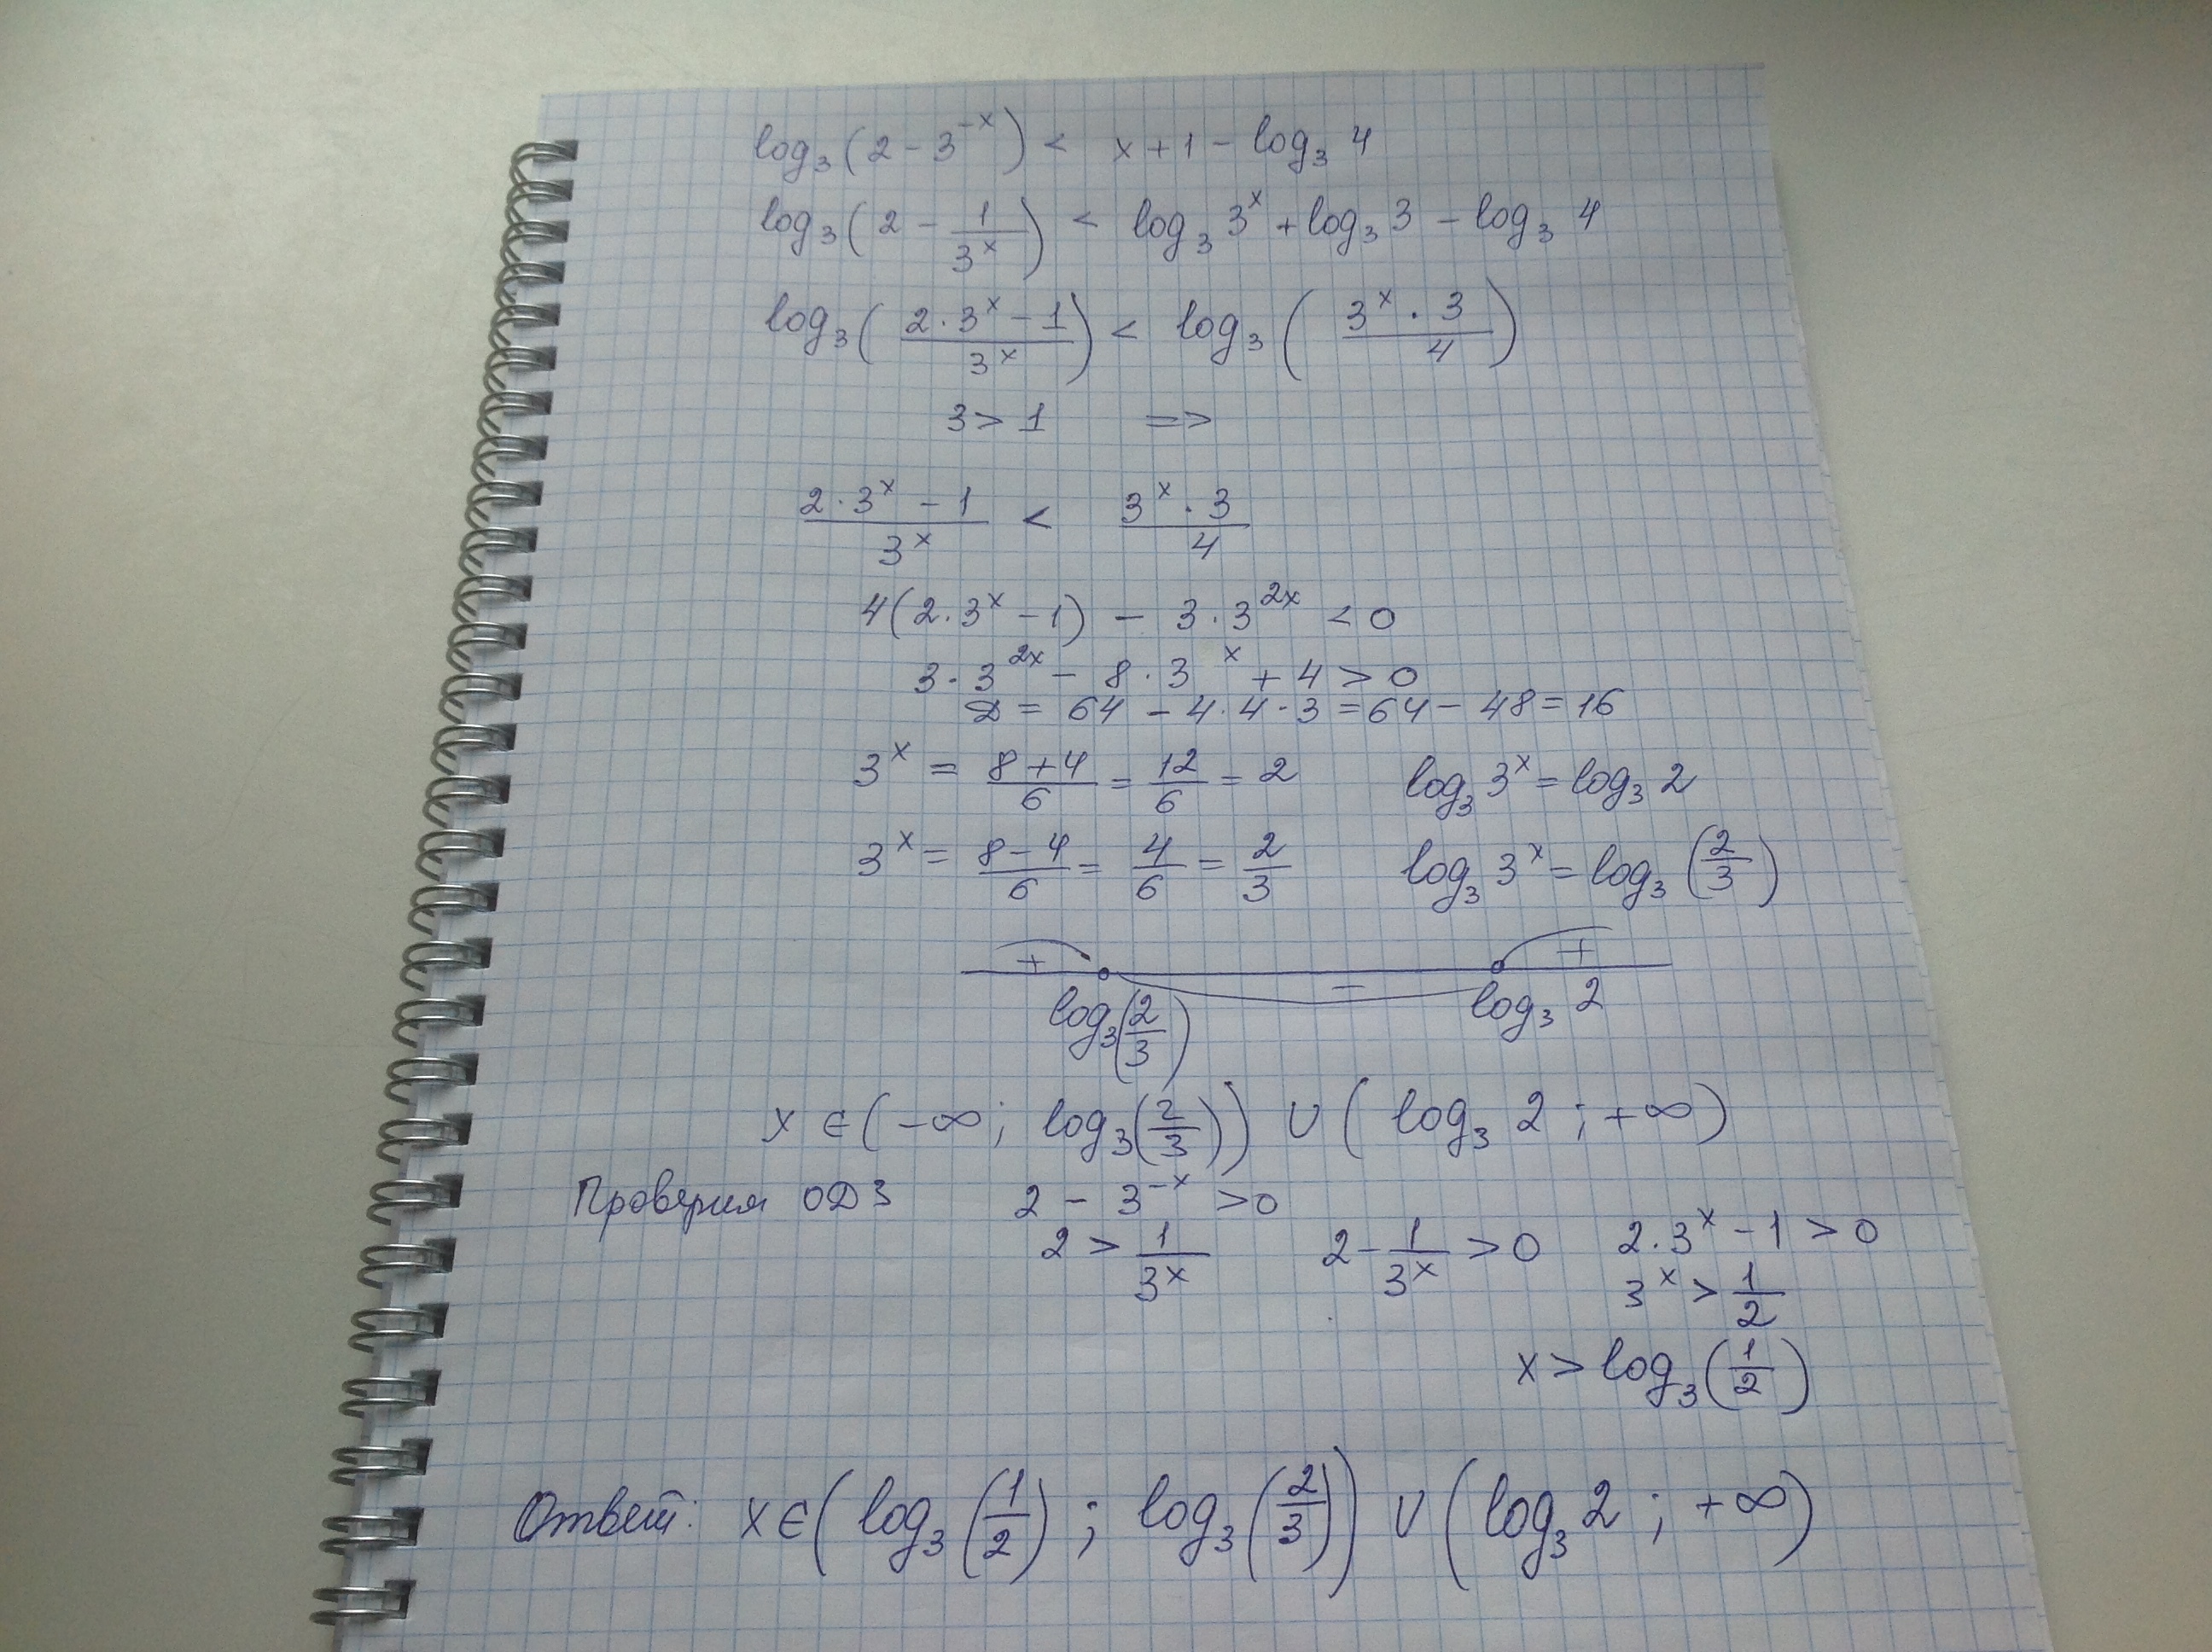 log₃(2 − 3^(−x)) < x + 1 − log₃ 4
log₃(2 − 1/3^x) < log₃ 3^x + log₃ 3 − log₃ 4
log₃((2·3^x − 1)/3^x) < log₃((3^x · 3)/4)
3 > 1 =>
(2·3^x − 1)/3^x < (3^x · 3)/4
4(2·3^x − 1) − 3·3^(2x) < 0
3·3^(2x) − 8·3^x + 4 > 0
D = 64 − 4·4·3 = 64 − 48 = 16
3^x = (8+4)/6 = 12/6 = 2 log₃ 3^x = log₃ 2
3^x = (8−4)/6 = 4/6 = 2/3 log₃ 3^x = log₃(2/3)
+ − +
log₃(2/3) log₃ 2
x ∈ (−∞; log₃(2/3)) ∪ (log₃ 2; +∞)
Проверим ОДЗ 2 − 3^(−x) > 0
2 > 1/3^x 2 − 1/3^x > 0 2·3^x − 1 > 0
3^x > 1/2
x > log₃(1/2)
Ответ: x ∈ (log₃(1/2); log₃(2/3)) ∪ (log₃ 2; +∞)